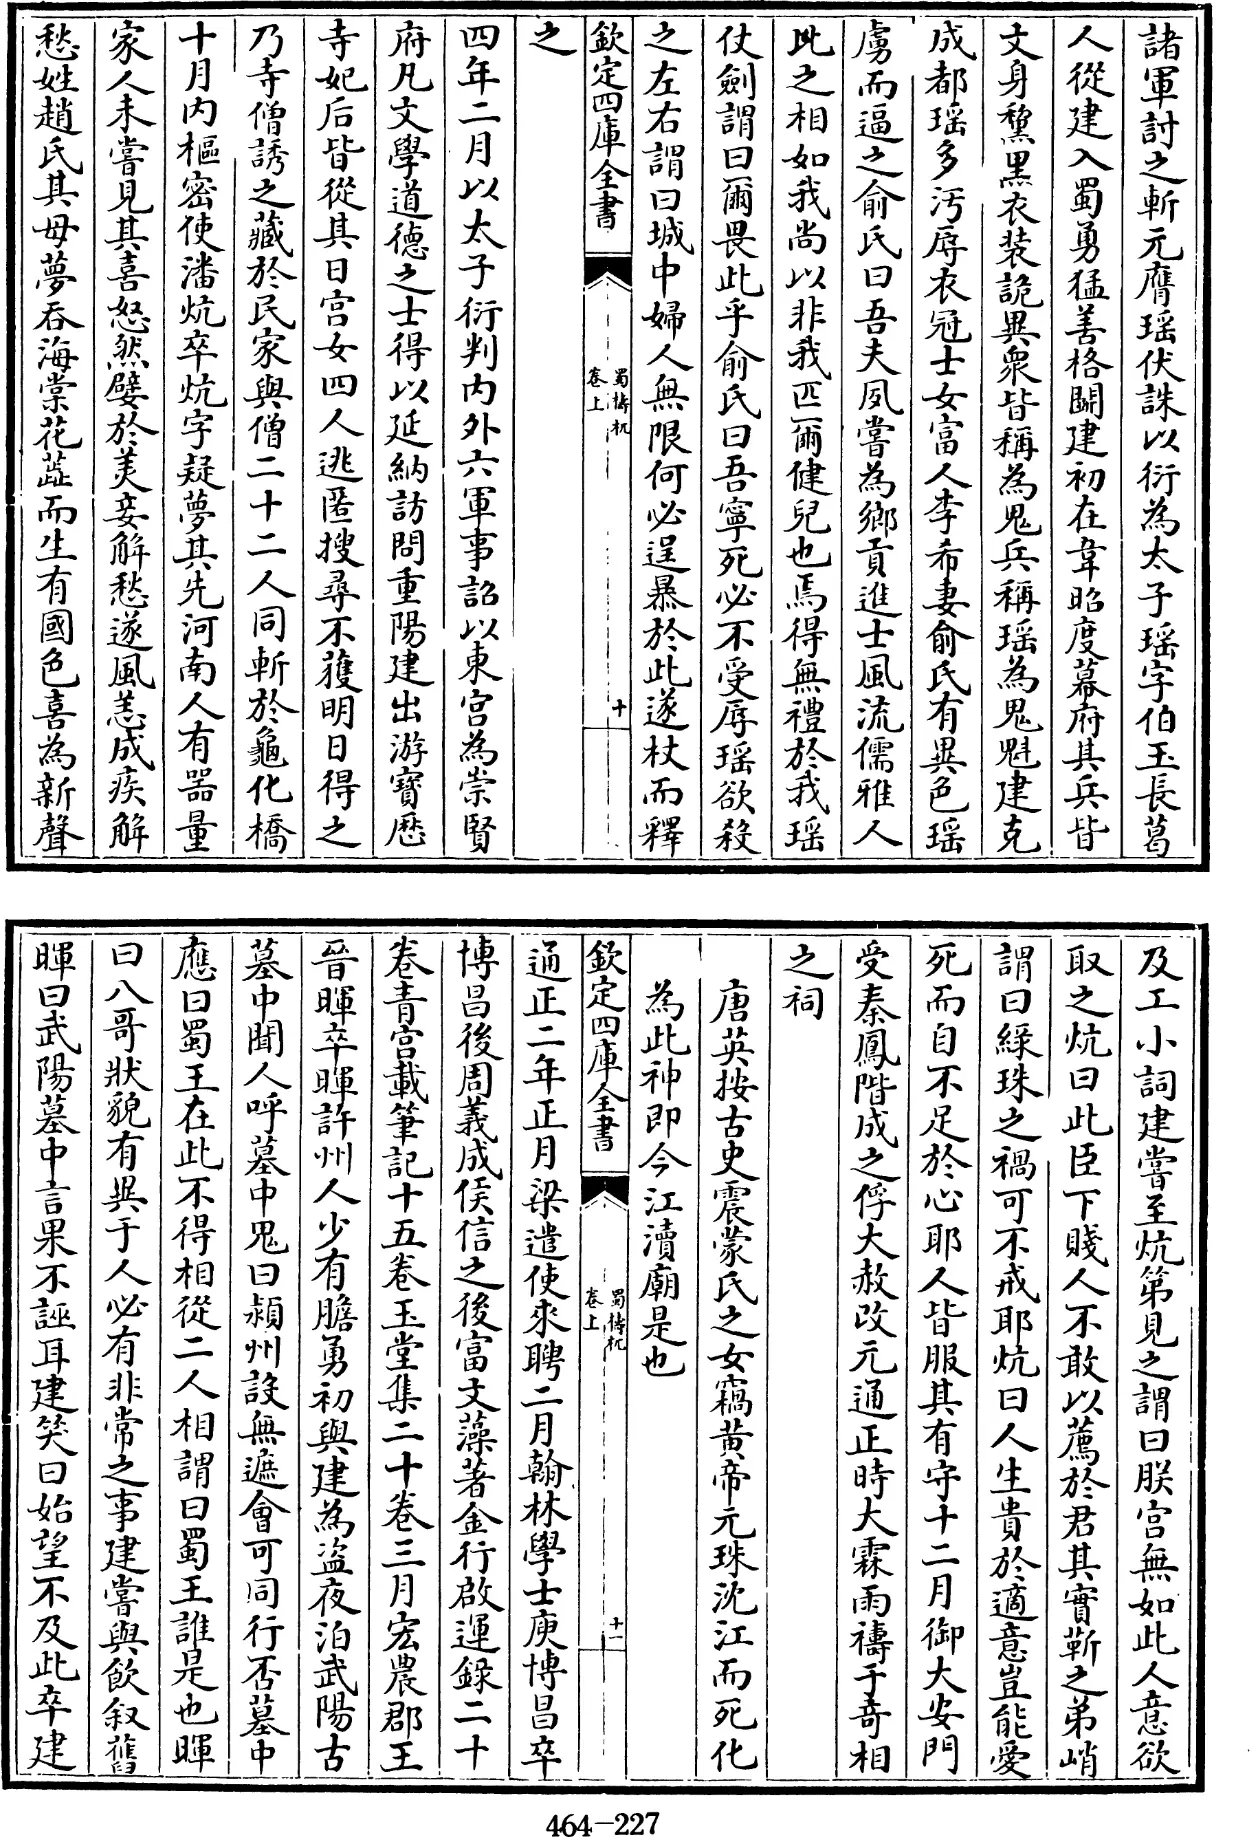 諸軍討之斬元膺瑶伏誅以衍為太子瑶字伯玉長葛
人從建入蜀勇猛善格鬭建初在韋昭度幕府其兵皆
文身黧黒衣装詭異衆皆稱為鬼兵稱瑶為鬼魁建克
成都瑶多汚辱衣冠士女富人李希妻俞氏有異色瑶
虜而逼之俞氏曰吾夫夙嘗為鄉貢進士風流儒雅人
此之相如我尚以非我匹爾健兒也焉得無禮於我瑶
仗劍謂曰爾畏此乎俞氏曰吾寧死必不受辱瑶欲殺
之左右謂曰城中婦人無限何必逞暴於此遂杖而釋
欽定四庫全書
蜀檮杌
卷上
十
之
四年二月以太子衍判内外六軍事詔以東宫為崇賢
府凡文學道德之士得以延納訪問重陽建出游寳厯
寺妃后皆從其日宫女四人逃匿搜尋不獲明日得之
乃寺僧誘之藏於民家與僧二十二人同斬於龜化橋
十月内樞密使潘炕卒炕字疑夢其先河南人有器量
家人未嘗見其喜怒然嬖於美妾解愁遂風恙成疾解
愁姓趙氏其母夢吞海棠花蕋而生有國色喜為新聲
及工小詞建嘗至炕第見之謂曰朕宫無如此人意欲
取之炕曰此臣下賤人不敢以薦於君其實靳之弟峭
謂曰緑珠之禍可不戒耶炕曰人生貴於適意豈能愛
死而自不足於心耶人皆服其有守十二月御大安門
受秦鳳階成之俘大赦改元通正時大霖雨禱于奇相
之祠
唐英按古史震蒙氏之女竊黄帝元珠沈江而死化
為此神即今江瀆廟是也
欽定四庫全書
蜀檮杌
卷上
十一
通正二年正月梁遣使來聘二月翰林學士庾博昌卒
博昌後周義成侯信之後富文藻著金行啟運録二十
卷青宫載筆記十五卷玉堂集二十卷三月宏農郡王
晉暉卒暉許州人少有膽勇初與建為盜夜泊武陽古
墓中聞人呼墓中鬼曰潁州設無遮會可同行否墓中
應曰蜀王在此不得相從二人相謂曰蜀王誰是也暉
曰八哥狀貌有異于人必有非常之事建嘗與飲叙舊
暉曰武陽墓中言果不誣耳建笑曰始望不及此卒建
464-227